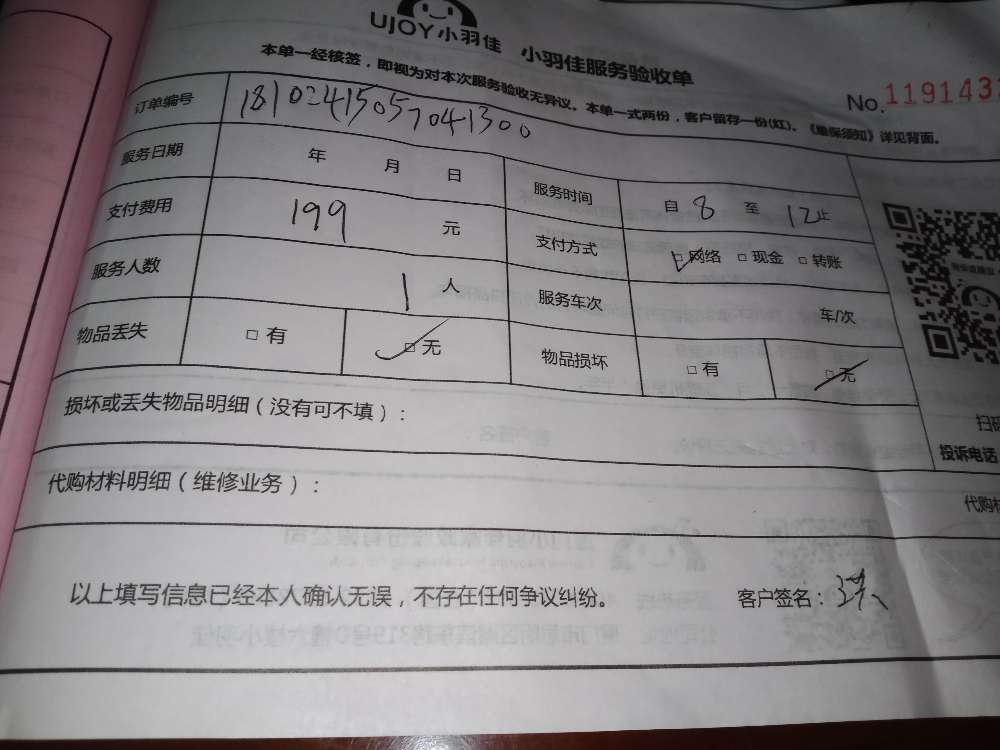 UJOY小羽佳 小羽佳服务验收单
本单一经核签，即视为对本次服务验收无异议。本单一式两份，客户留存一份(红)。《维保须知》详见背面。
No.119143
订单编号 18102415057041300
服务日期 年 月 日 服务时间 自 8 至 12 止
支付费用 199 元 支付方式 □网络 □现金 □转账
服务人数 1 人 服务车次 车/次
物品丢失 □有 □无 物品损坏 □有 □无
损坏或丢失物品明细（没有可不填）：
扫码
投诉电话
代购材料明细（维修业务）：
代购材
以上填写信息已经本人确认无误，不存在任何争议纠纷。 客户签名：